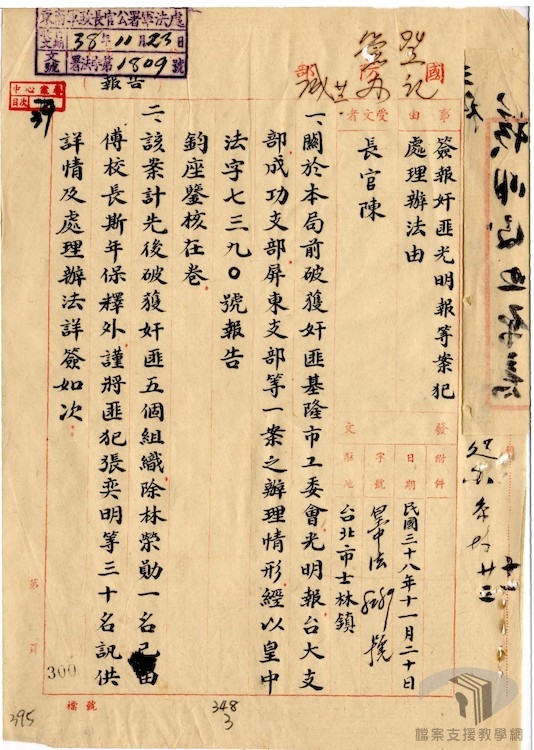 東南軍政長官公署軍法處
38年11月23日
文號 署法字第1809號
(報告
中心彙專
目次
39
國
登記
事由
簽報奸匪光明報等案犯
處理辦法由
受文者
長官陳
發文
附件
日期
民國三十八年十一月二十日
字號
皇中法
號
駐地
台北市士林鎮
一、關於本局前破獲奸匪基隆市工委會光明報台大支
部成功支部屏東支部等一案之辦理情形經以皇中
法字七三九〇號報告
鈞座鑒核在卷
二、該案計先後破獲奸匪五個組織除林榮勛一名已由
傅校長斯年保釋外謹將匪犯張奕明等三十名訊供
詳情及處理辦法詳簽如次
第 頁
300
檔號
348
3
395
檔案支援教學網